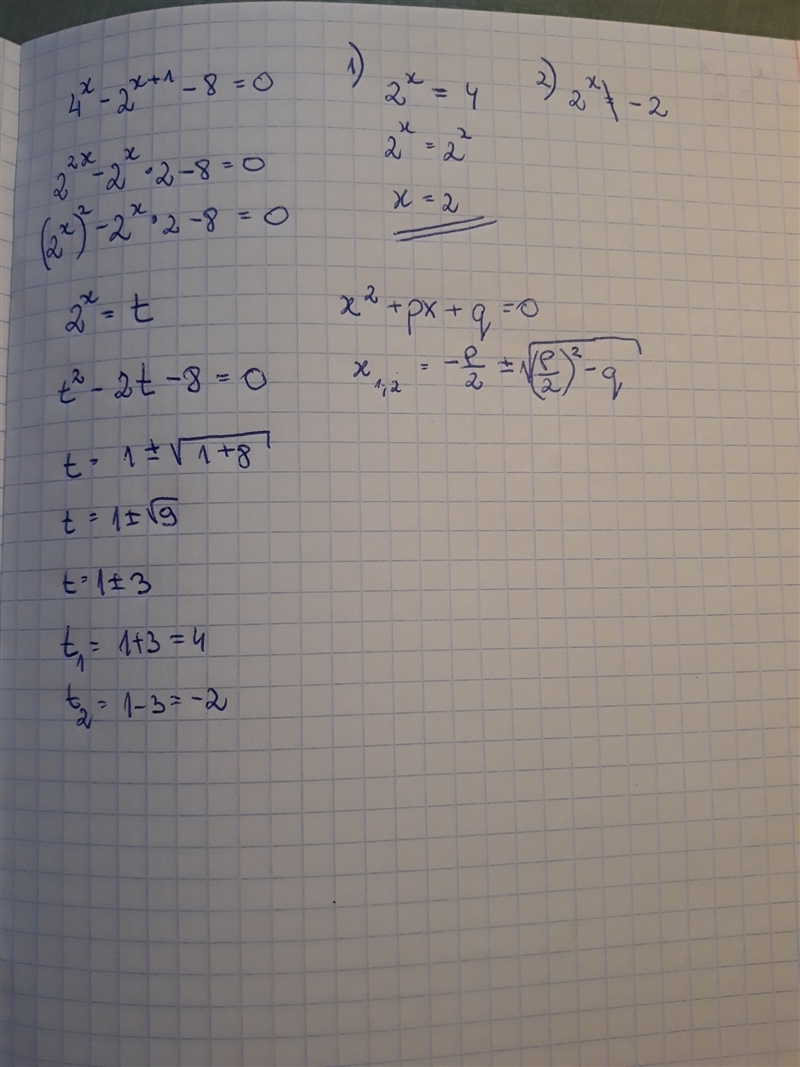 4^x - 2^(x+1) - 8 = 0
2^(2x) - 2^x · 2 - 8 = 0
(2^x)^2 - 2^x · 2 - 8 = 0
2^x = t
t² - 2t - 8 = 0
t = 1 ± √(1+8)
t = 1 ± √9
t = 1 ± 3
t₁ = 1+3 = 4
t₂ = 1-3 = -2
1)
2^x = 4
2^x = 2^2
x = 2
2) 2^x ≠ -2
x² + px + q = 0
x₁,₂ = -p/2 ± √((p/2)² - q)